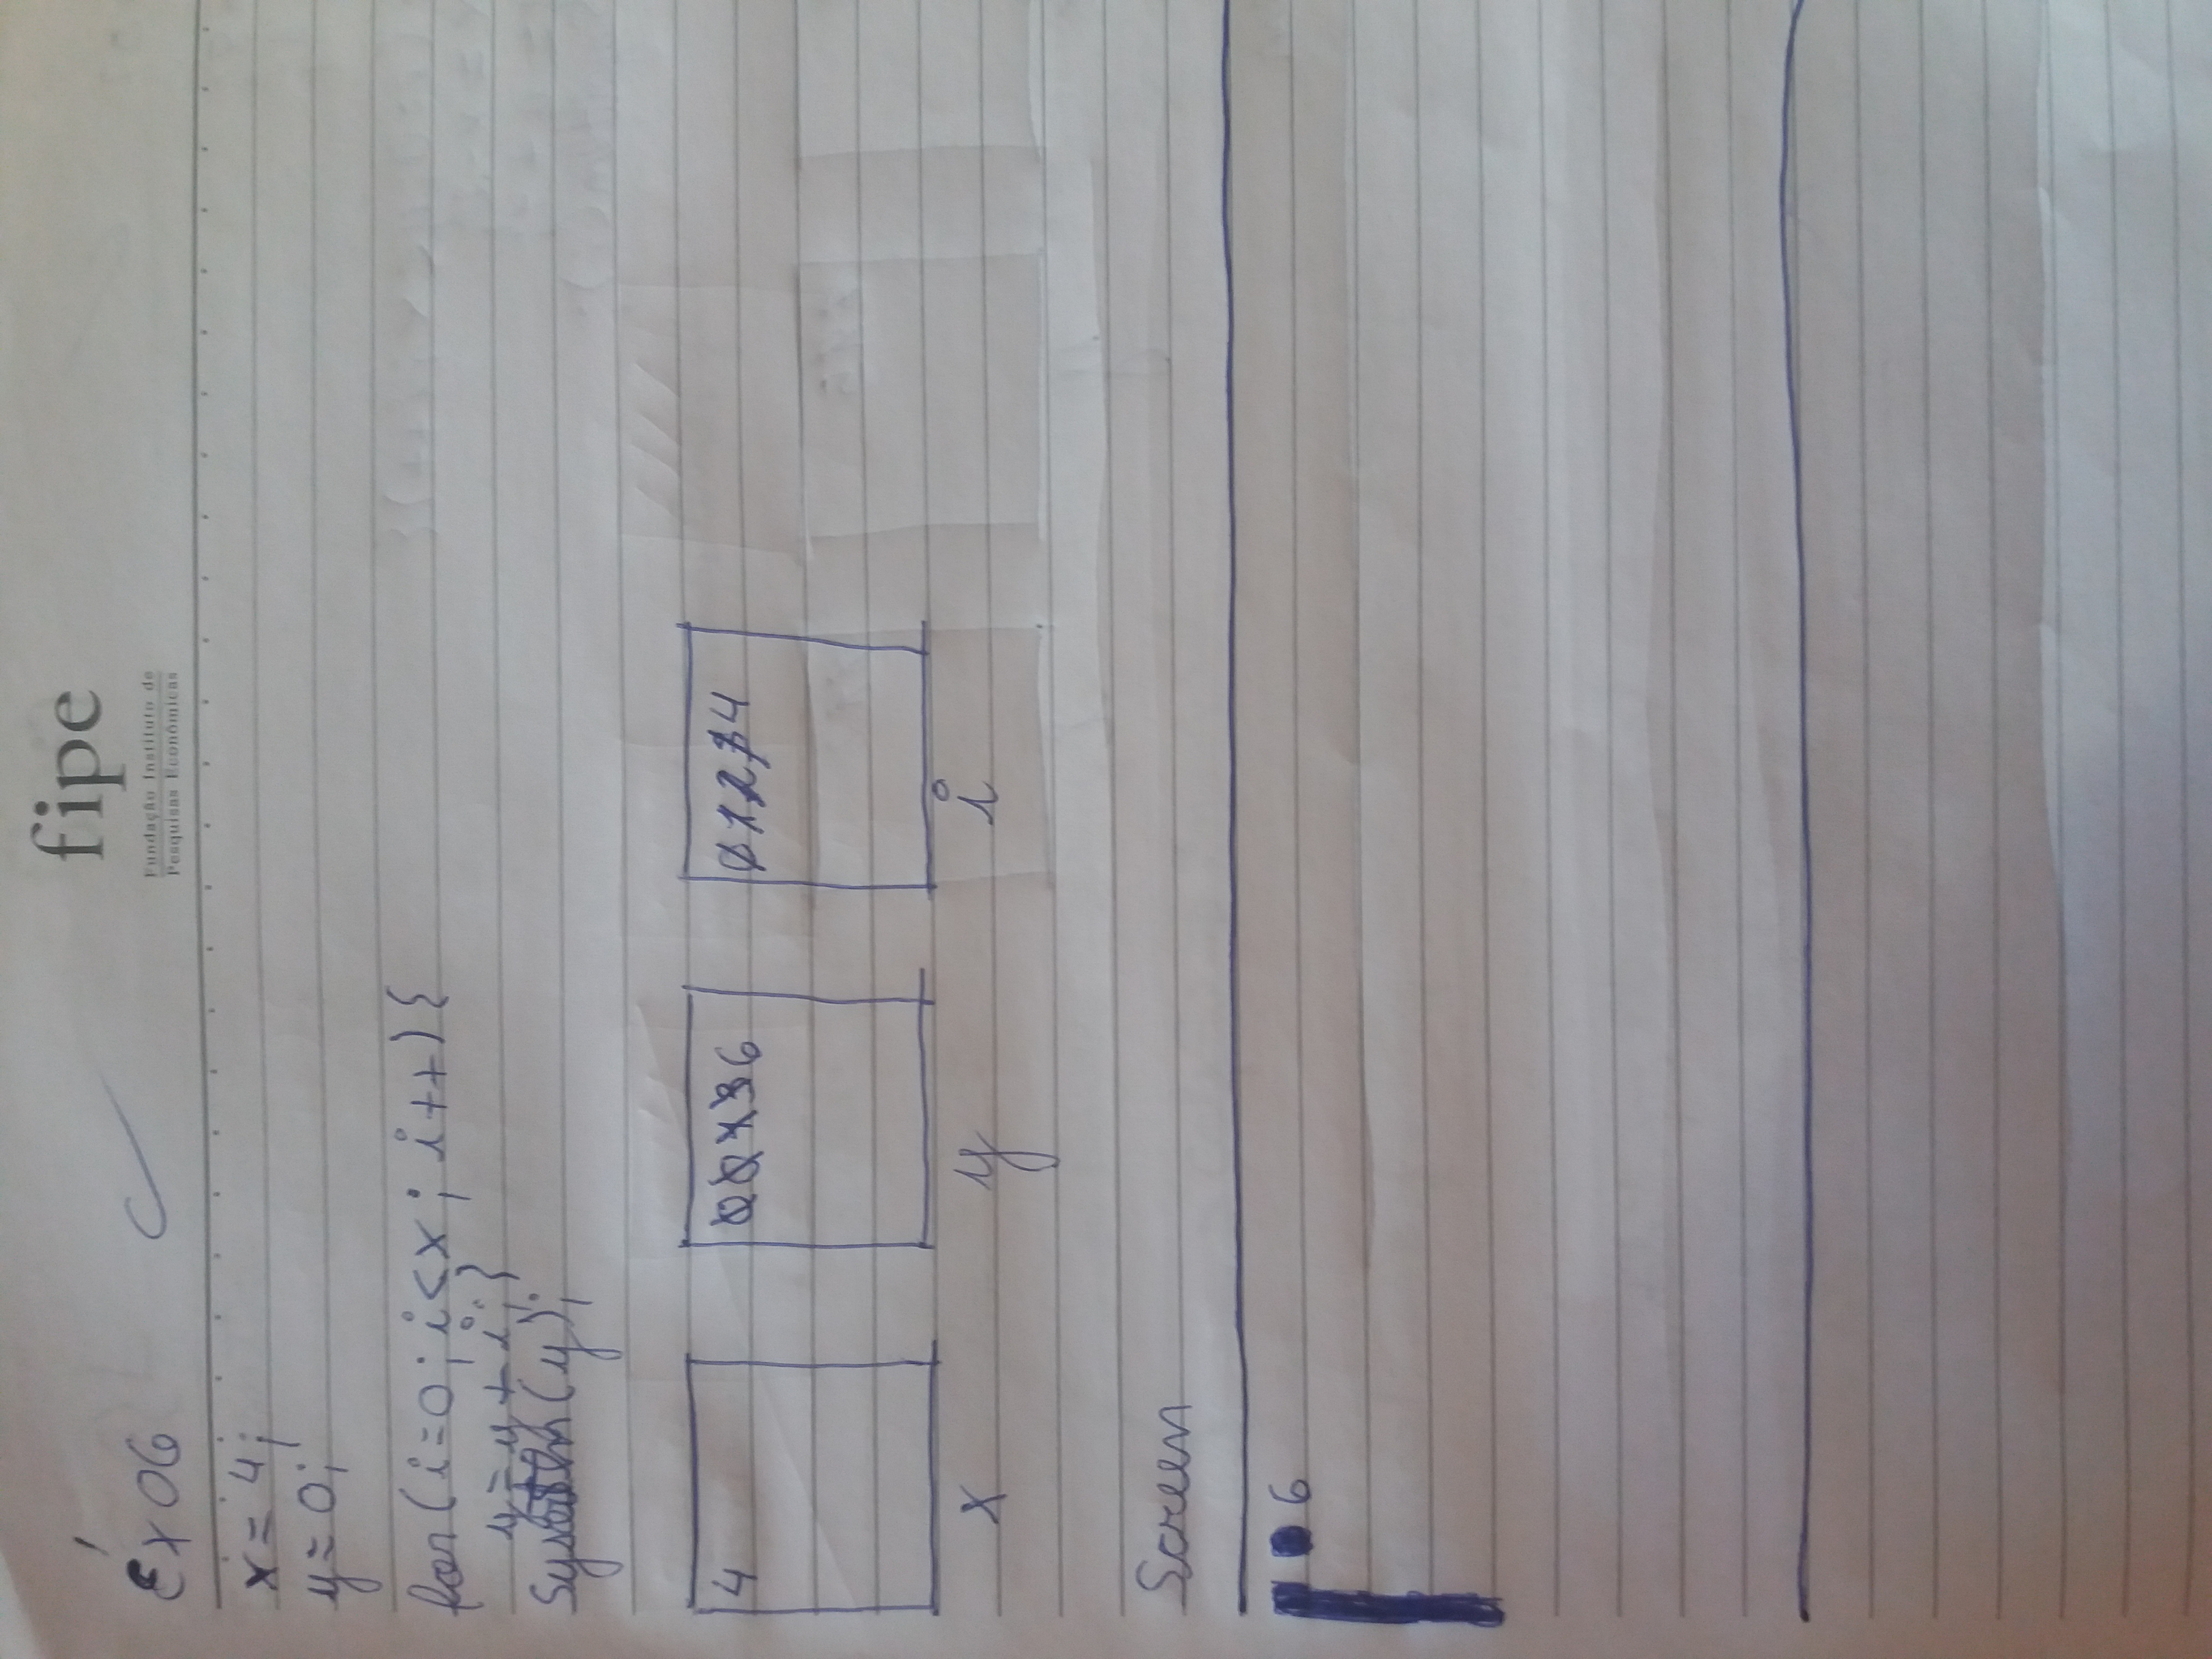 fipe
Fundação Instituto de
Pesquisas Econômicas
Ex 06
x = 4;
y = 0;
for(i=0; i<x; i++){
y = y + i;}
System(y);
4
0 0 1 3 6
0 1 2 3 4
x
y
i
Screen
6